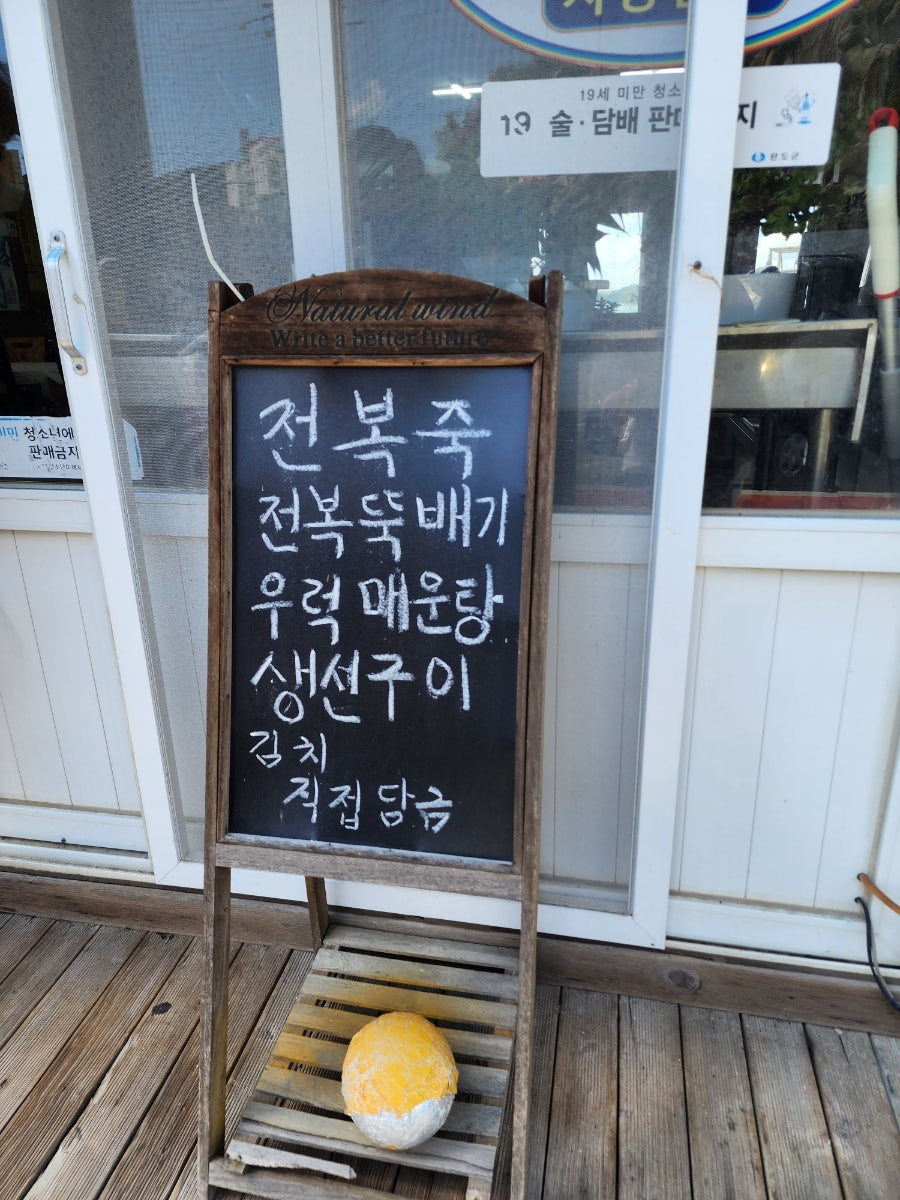 19세 미만 청소
19 술·담배 판 지
완도군
Natural wind
Write a better future
청소년에
판매금지
전복죽
전복뚝배기
우럭매운탕
생선구이
김치
직접담금